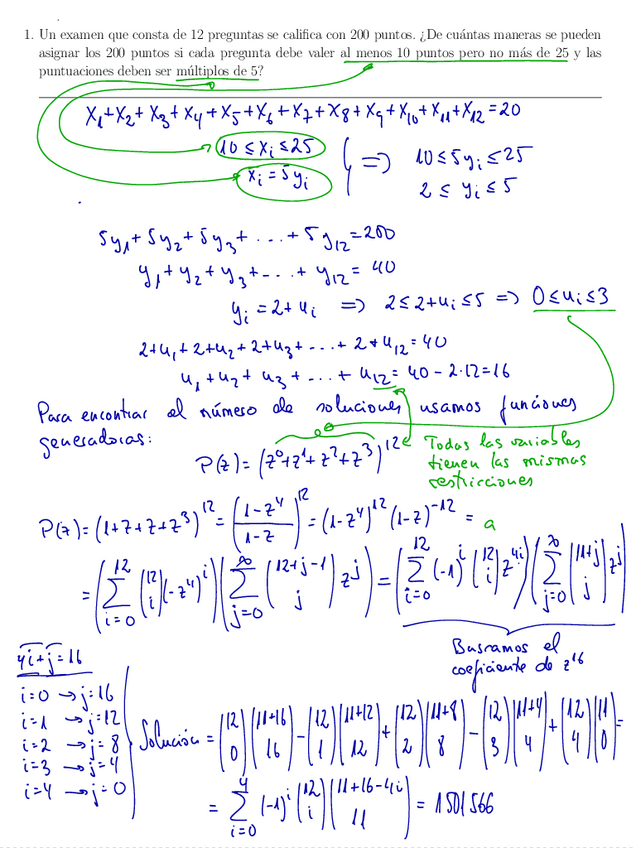 1. Un examen que consta de 12 preguntas se califica con 200 puntos. ¿De cuántas maneras se pueden
asignar los 200 puntos si cada pregunta debe valer al menos 10 puntos pero no más de 25 y las
puntuaciones deben ser múltiplos de 5?
x₁+x₂+x₃+x₄+x₅+x₆+x₇+x₈+x₉+x₁₀+x₁₁+x₁₂=20
10≤xᵢ≤25 } => 10≤5yᵢ≤25
xᵢ=5yᵢ 2≤yᵢ≤5
5y₁+5y₂+5y₃+...+5y₁₂=200
y₁+y₂+y₃+...+y₁₂=40
yᵢ=2+uᵢ => 2≤2+uᵢ≤5 => 0≤uᵢ≤3
2+u₁+2+u₂+2+u₃+...+2+u₁₂=40
u₁+u₂+u₃+...+u₁₂=40-2·12=16
Para encontrar el número de soluciones usamos funciones
generadoras:
P(z)=(z⁰+z¹+z²+z³)¹² Todas las variables
tienen las mismas
restricciones
P(z)=(1+z+z+z³)¹²=((1-z⁴)/(1-z))¹²=(1-z⁴)¹²(1-z)⁻¹²=
=(∑_{i=0}^{12} (12 i)(-z⁴)ⁱ)(∑_{j=0}^{∞} (12+j-1 j) zʲ)=(∑_{i=0}^{12} (-1)ⁱ (12 i) z⁴ⁱ)(∑_{j=0}^{∞} (11+j j) zʲ)
Buscamos el
coeficiente de z¹⁶
4i+j=16
i=0 → j=16
i=1 → j=12
i=2 → j=8
i=3 → j=4
i=4 → j=0
Solución = (12 0)(11+16 16) - (12 1)(11+12 12) + (12 2)(11+8 8) - (12 3)(11+4 4) + (12 4)(11 0) =
= ∑_{i=0}^{4} (-1)ⁱ (12 i)(11+16-4i 11) = 1501566